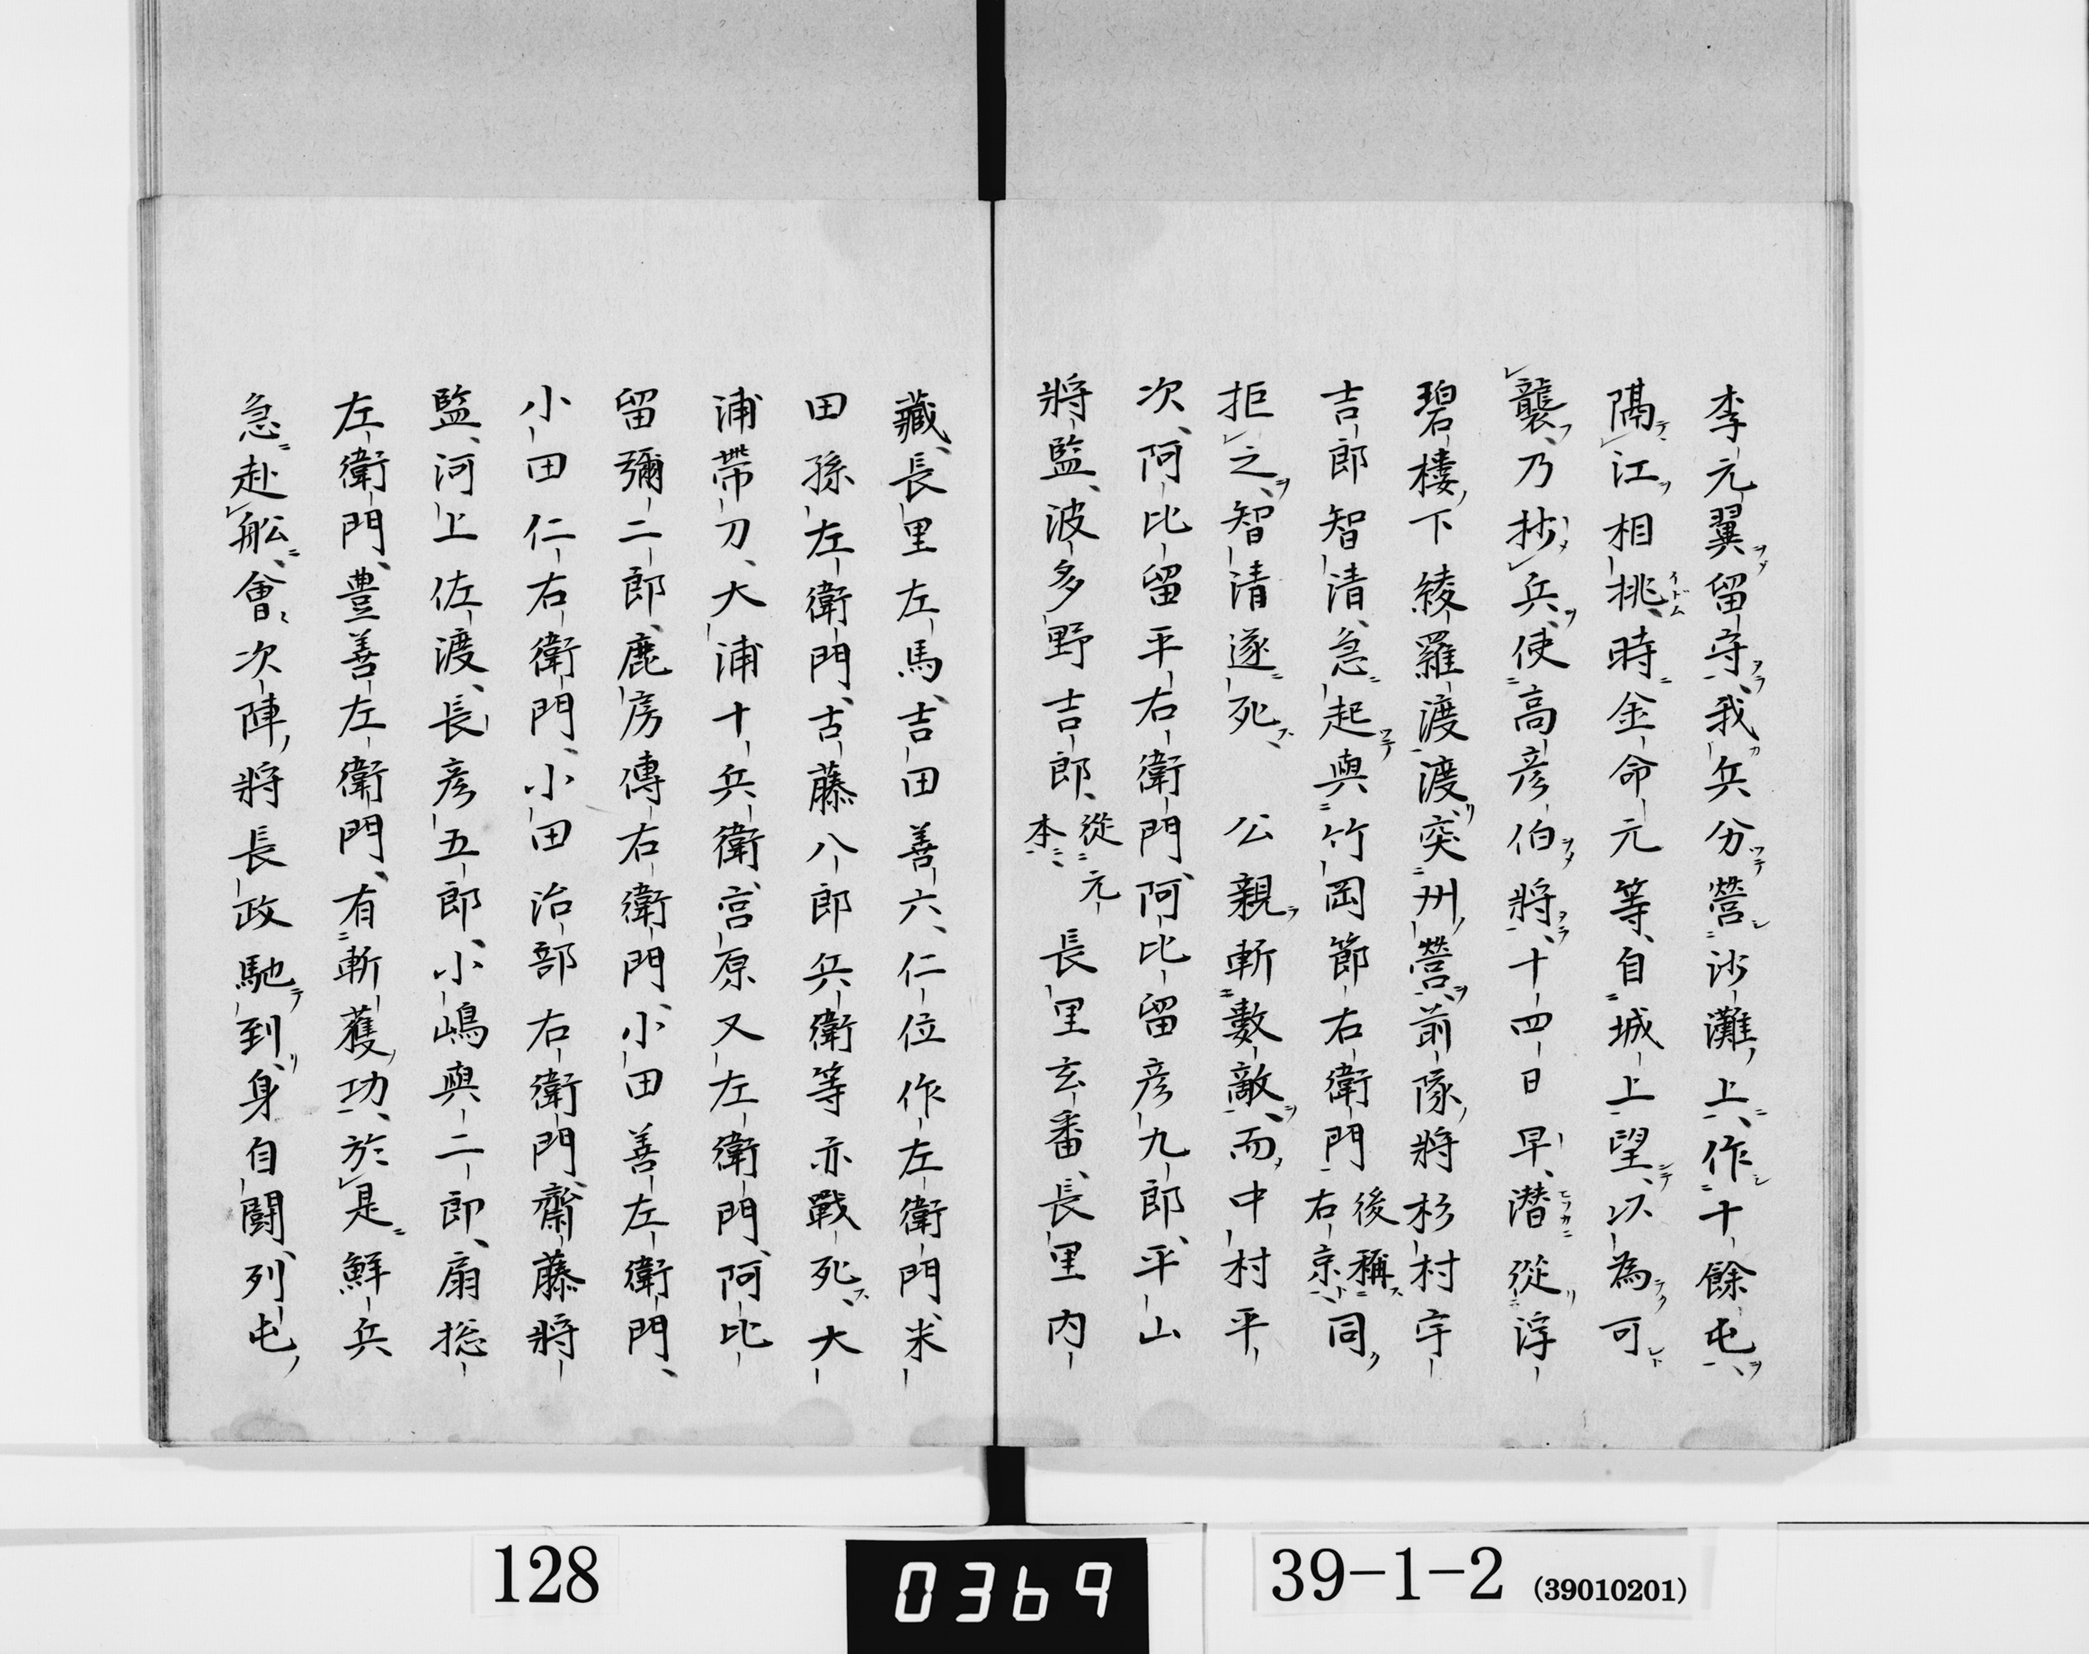 李元翼留守我兵分營沙灘上作十餘屯
隔江相挑時金命元等自城上望以為可
襲乃抄兵使高彦伯將十四日早潜從浮
碧樓下綾羅渡渡突州營前隊將杉村宇
吉郎智清急起與竹岡節右衛門後稱右京同
拒之智清遂死　公親斬數敵而中村平
次阿比留平右衛門阿比留彦九郎平山
將監波多野吉郎從元本長里玄番長里内
藏長里左馬吉田善六仁位作左衛門米
田孫左衛門古藤八郎兵衛等亦戰死大
浦帶刀大浦十兵衛宮原又左衛門阿比
留彌二郎鹿房傳右衛門小田善左衛門
小田仁右衛門小田治部右衛門齋藤將
監河上佐渡長彦五郎小嶋與二郎扇捴
左衛門豊善左衛門有斬獲功於是鮮兵
急赴舩會次陣將長政馳到身自鬪列屯
128
0369
39-1-2 (39010201)